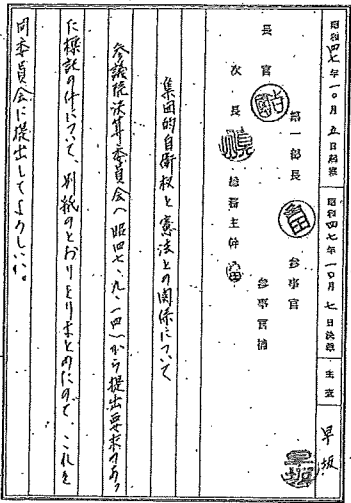 昭和四七年一〇月五日起案
昭和四七年一〇月七日決裁
主査
早坂
長官
次長
第一部長
総務主幹
参事官
参事官補
集団的自衛権と憲法との関係について
参議院決算委員会(昭四七、九、一四)から提出要求のあつ
た標記の件について、別紙のとおりとりまとめたので、これを
同委員会に提出してよろしいか。